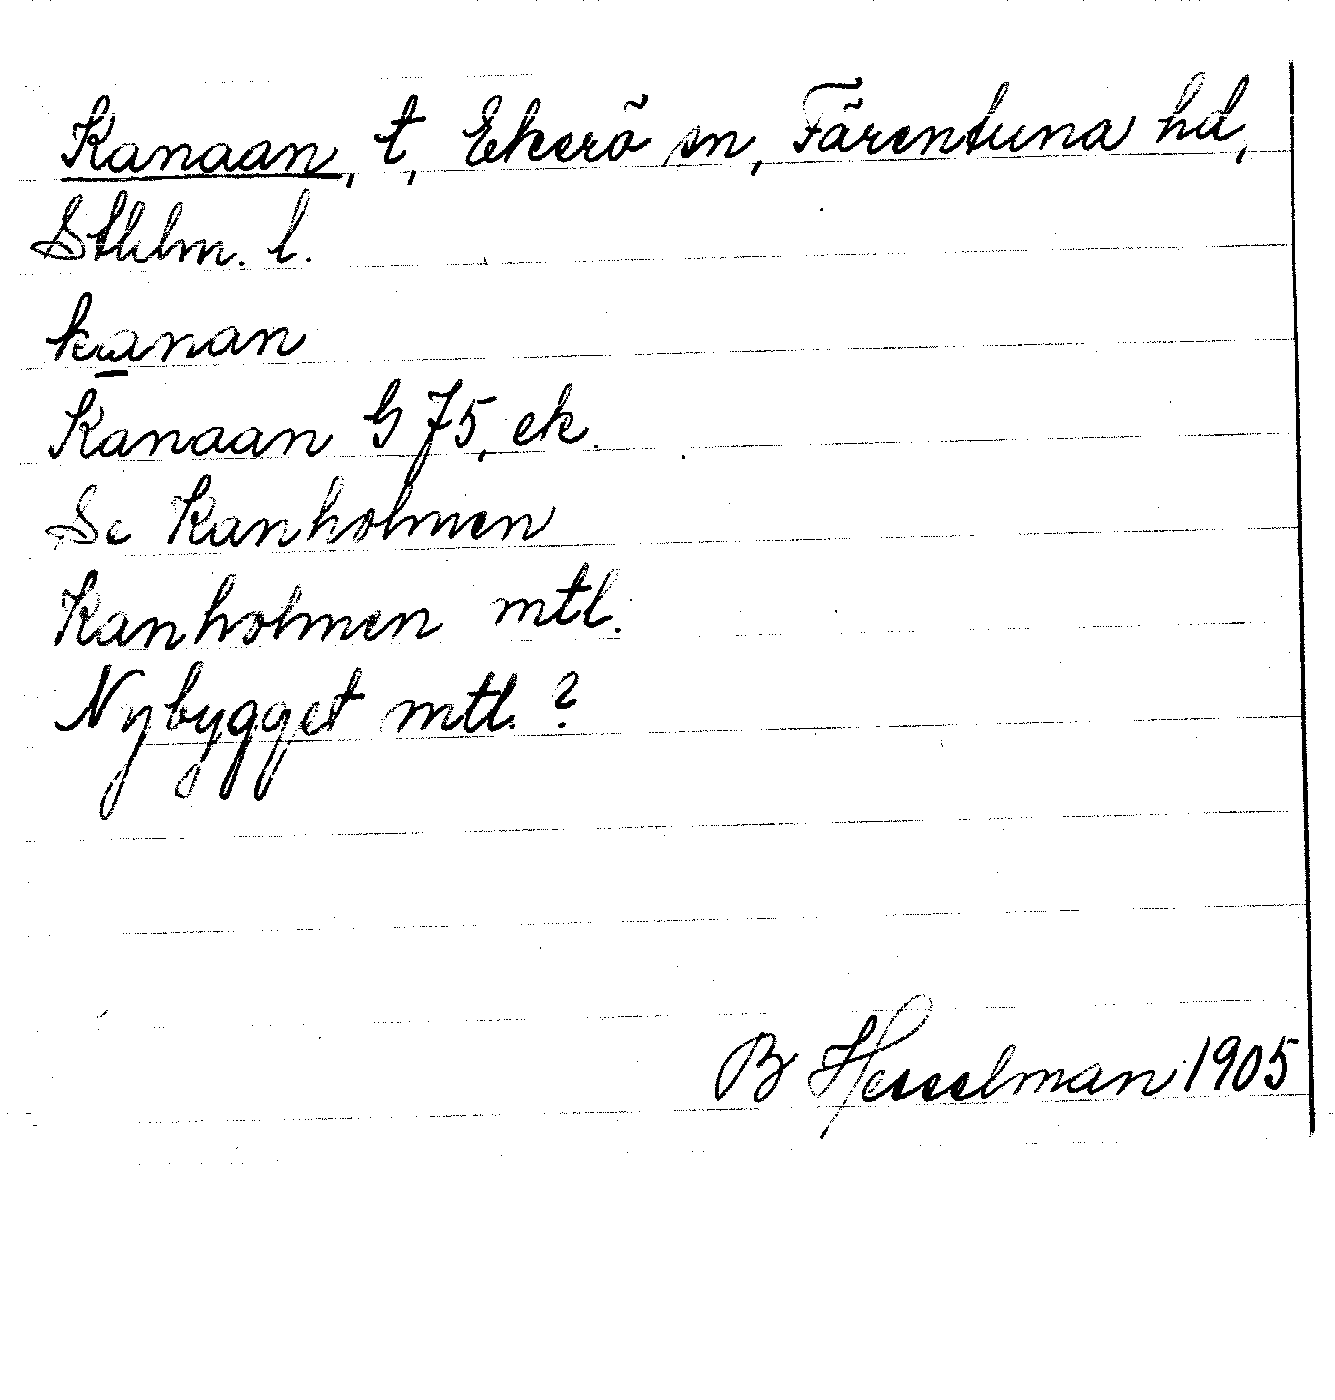 Kanaan, t, Ekerö sn, Färentuna hd,
Sthlm. l.
kanan
Kanaan G 75, ek.
Se Kanholmen
Kanholmen mtl.
Nybygget mtl. ?
B Hesselman 1905